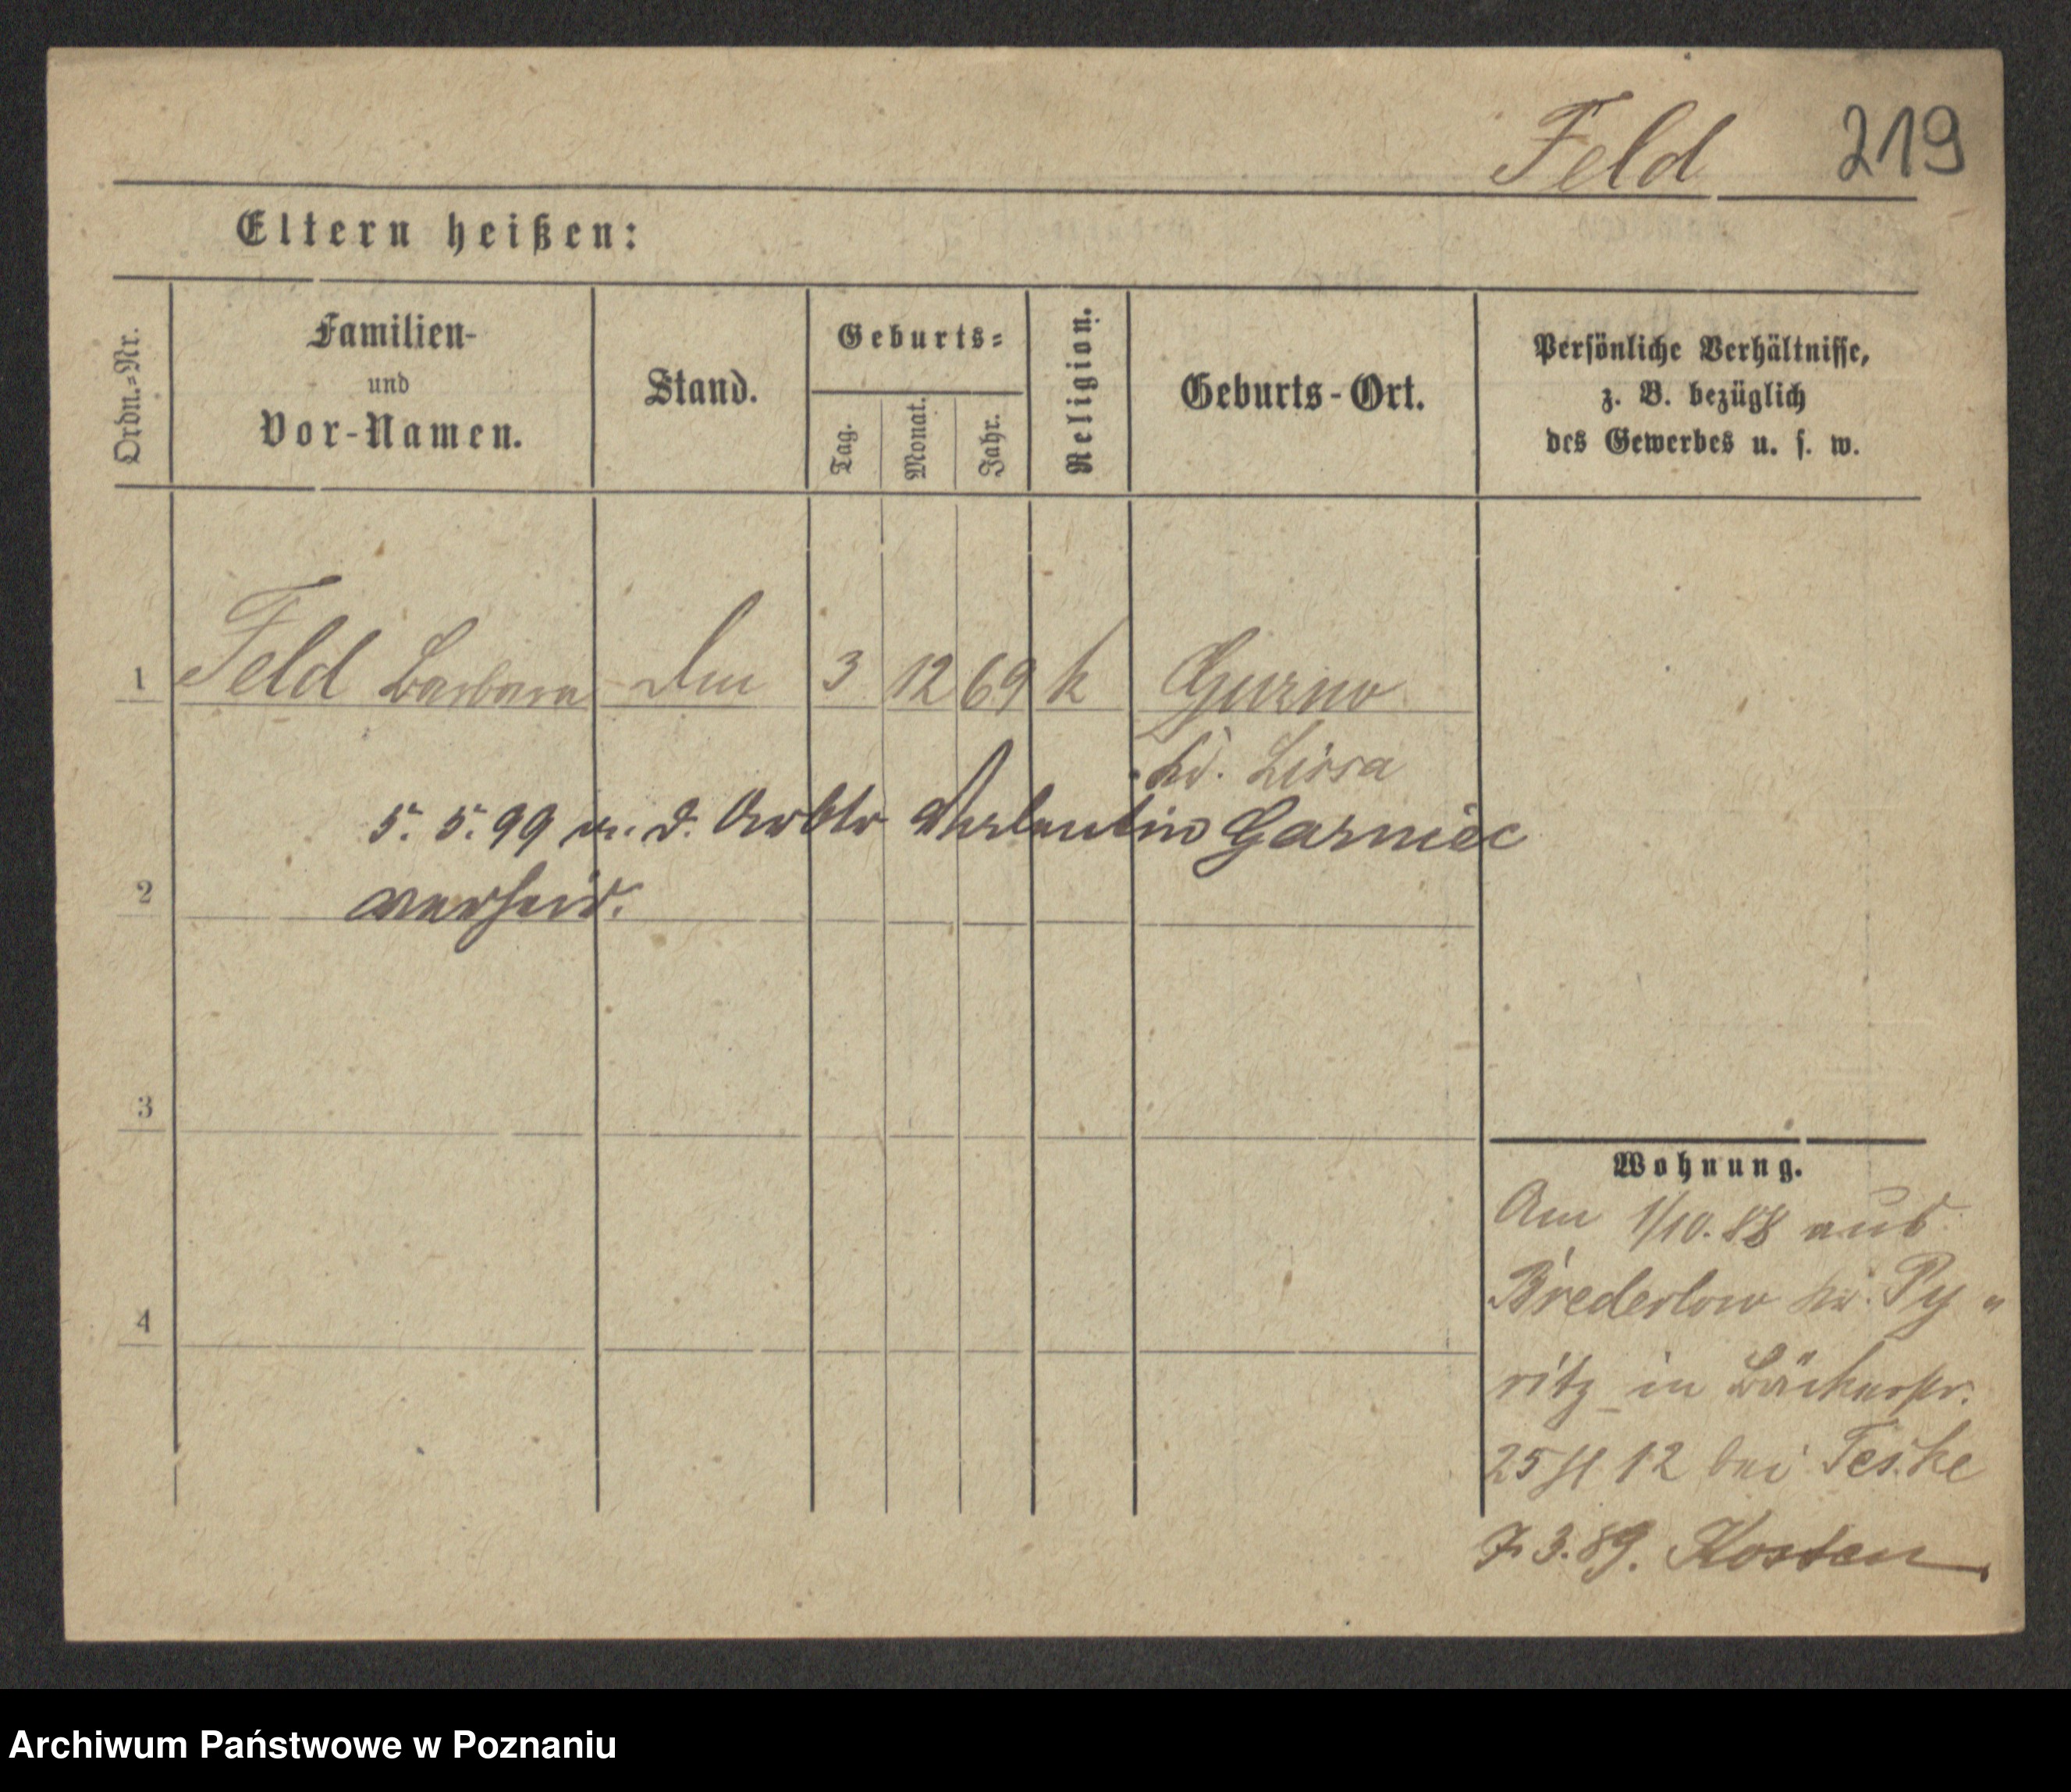 Feld 219
Eltern heißen:
Ordn.-Nr.
Familien-
und
Vor-Namen.
Stand.
Geburts-
Tag.
Monat.
Jahr.
Religion.
Geburts-Ort.
Persönliche Verhältnisse,
z. B. bezüglich
des Gewerbes u. s. w.
1 Feld Barbara 3 12 69 k Gurno
Lissa
5. 5. 99 m. d. Arbtr Valentin Garniec
2 verheir.
3
4
Wohnung.
Am 1/10. 88 aus
Brederlow Kr. Py"
ritz in Bäckerstr.
25 12 bei Teske
7. 3. 89. Kosten
Archiwum Państwowe w Poznaniu